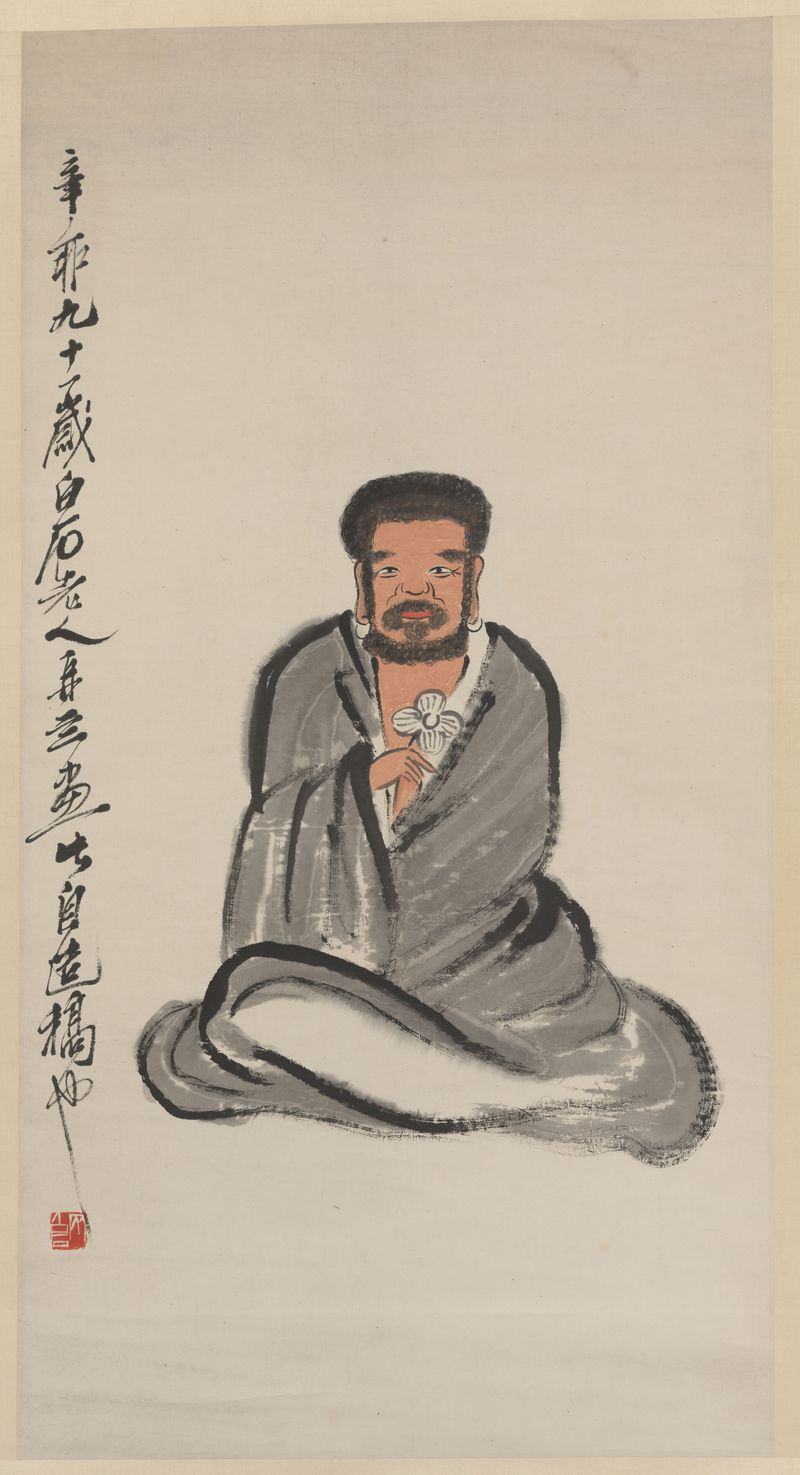 辛卯九十一歲白石老人再三畫此自造稿也